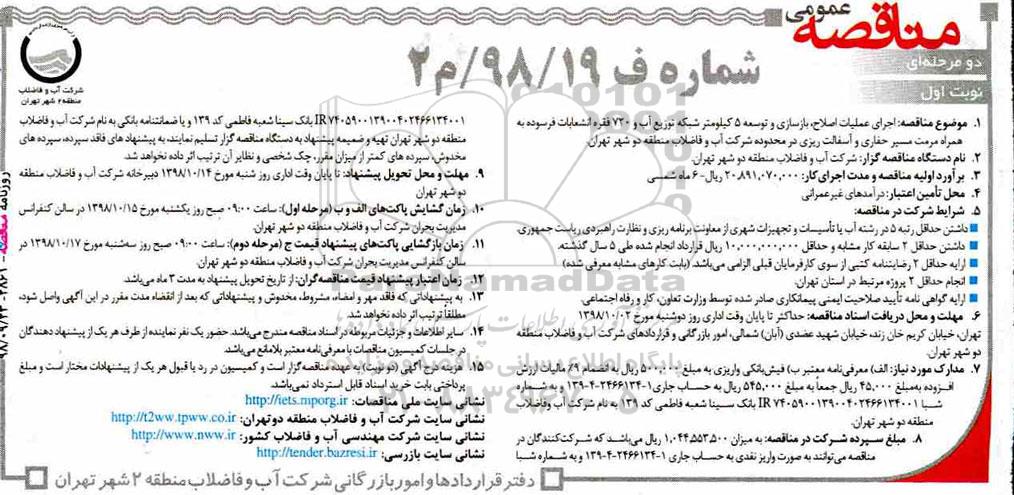 مناقصه عمومی
دو مرحله‌ای
نوبت اول
شماره ف ۹۸/۱۹/م۲
شرکت آب و فاضلاب
منطقه ۲ شهر تهران
۱. موضوع مناقصه: اجرای عملیات اصلاح، بازسازی و توسعه ۵ کیلومتر شبکه توزیع آب و ۷۲۰ فقره انشعابات فرسوده به
همراه مرمت مسیر حفاری و آسفالت ریزی در محدوده شرکت آب و فاضلاب منطقه دو شهر تهران.
۲. نام دستگاه مناقصه گزار: شرکت آب و فاضلاب منطقه دو شهر تهران.
۳. برآورد اولیه مناقصه و مدت اجرای کار: ۲۰,۸۹۱,۰۷۰,۰۰۰ ریال- ۶ ماه شمسی
۴. محل تأمین اعتبار: درآمدهای غیرعمرانی
۵. شرایط شرکت در مناقصه:
داشتن حداقل رتبه ۵ در رشته آب یا تأسیسات و تجهیزات شهری از معاونت برنامه ریزی و نظارت راهبردی ریاست جمهوری.
داشتن حداقل ۲ سابقه کار مشابه و حداقل ۱۰,۰۰۰,۰۰۰,۰۰۰ ریال قرارداد انجام شده طی ۵ سال گذشته.
ارایه حداقل ۲ رضایتنامه کتبی از سوی کارفرمایان قبلی الزامی می‌باشد. (بابت کارهای مشابه معرفی شده)
انجام حداقل ۲ پروژه مرتبط در استان تهران.
ارایه گواهی نامه تأیید صلاحیت ایمنی پیمانکاری صادر شده توسط وزارت تعاون، کار و رفاه اجتماعی.
۶. مهلت و محل دریافت اسناد مناقصه: حداکثر تا پایان وقت اداری روز دوشنبه مورخ ۱۳۹۸/۱۰/۰۲
تهران، خیابان کریم خان زند، خیابان شهید عضدی (آبان) شمالی، امور بازرگانی و قراردادهای شرکت آب و فاضلاب منطقه
دو شهر تهران.
۷. مدارک مورد نیاز: الف) معرفی‌نامه معتبر ب) فیش‌بانکی واریزی به مبلغ ۵۰۰,۰۰۰ ریال به انضمام ۹٪ مالیات ارزش
افزوده به‌مبلغ ۴۵,۰۰۰ ریال جمعاً به مبلغ ۵۴۵,۰۰۰ ریال به حساب جاری ۱-۲۴۶۶۱۳۴-۴-۱۳۹ و به شماره
شبا IR ۷۴۰۵۹۰۰۱۳۹۰۰۴۰۲۴۶۶۱۳۴۰۰۱ بانک سینا شعبه فاطمی کد ۱۳۹ به نام شرکت آب وفاضلاب
منطقه دو شهر تهران.
۸. مبلغ سپرده شرکت در مناقصه: به میزان ۱,۰۴۴,۵۵۳,۵۰۰ ریال می‌باشد که شرکت‌کنندگان در
مناقصه می‌توانند به صورت واریز نقدی به حساب جاری ۱-۲۴۶۶۱۳۴-۴-۱۳۹ و به شماره شبا
IR ۷۴۰۵۹۰۰۱۳۹۰۰۴۰۲۴۶۶۱۳۴۰۰۱ بانک سینا شعبه فاطمی کد ۱۳۹ و یا ضمانتنامه بانکی به نام شرکت آب و فاضلاب
منطقه دو شهر تهران تهیه و ضمیمه پیشنهاد به دستگاه مناقصه گزار تسلیم نمایند، به پیشنهاد های فاقد سپرده، سپرده های
مخدوش، سپرده های کمتر از میزان مقرر، چک شخصی و نظایر آن ترتیب اثر داده نخواهد شد.
۹. مهلت و محل تحویل پیشنهاد: تا پایان وقت اداری روز شنبه مورخ ۱۳۹۸/۱۰/۱۴ دبیرخانه شرکت آب و فاضلاب منطقه
دو شهر تهران
۱۰. زمان گشایش پاکت‌های الف و ب (مرحله اول): ساعت ۰۹:۰۰ صبح روز یکشنبه مورخ ۱۳۹۸/۱۰/۱۵ در سالن کنفرانس
مدیریت بحران شرکت آب و فاضلاب منطقه دو شهر تهران.
۱۱. زمان بازگشایی پاکت‌های پیشنهاد قیمت ج (مرحله دوم): ساعت ۰۹:۰۰ صبح روز سه‌شنبه مورخ ۱۳۹۸/۱۰/۱۷ در
سالن کنفرانس مدیریت بحران شرکت آب و فاضلاب منطقه دو شهر تهران.
۱۲. زمان اعتبار پیشنهاد قیمت مناقصه‌گران: از تاریخ تحویل پیشنهاد به مدت ۳ ماه می‌باشد.
۱۳. به پیشنهاداتی که فاقد مهر و امضاء، مشروط، مخدوش و پیشنهاداتی که بعد از انقضاء مدت مقرر در این آگهی واصل شود،
مطلقاً ترتیب اثر داده نخواهد شد.
۱۴. سایر اطلاعات و جزئیات مربوطه در اسناد مناقصه مندرج می‌باشد. حضور یک نفر نماینده از طرف هر یک از پیشنهاد دهندگان
در جلسات کمیسیون مناقصات با معرفی‌نامه معتبر بلامانع می‌باشد.
۱۵. هزینه درج آگهی (دو نوبت) به عهده مناقصه‌گزار است و کمیسیون در رد یا قبول هر یک از پیشنهادات مختار است و مبلغ
پرداختی بابت خرید اسناد قابل استرداد نمی‌باشد.
نشانی سایت ملی مناقصات: http://iets.mporg.ir
نشانی سایت شرکت آب و فاضلاب منطقه دوتهران: http://t2ww.tpww.co.ir
نشانی سایت شرکت مهندسی آب و فاضلاب کشور: http://www.nww.ir
نشانی سایت بازرسی: http://tender.bazresi.ir
دفتر قراردادها و امور بازرگانی شرکت آب و فاضلاب منطقه ۲ شهر تهران
ParsNamadData
پایگاه اطلاع رسانی مناقصه و مزایده